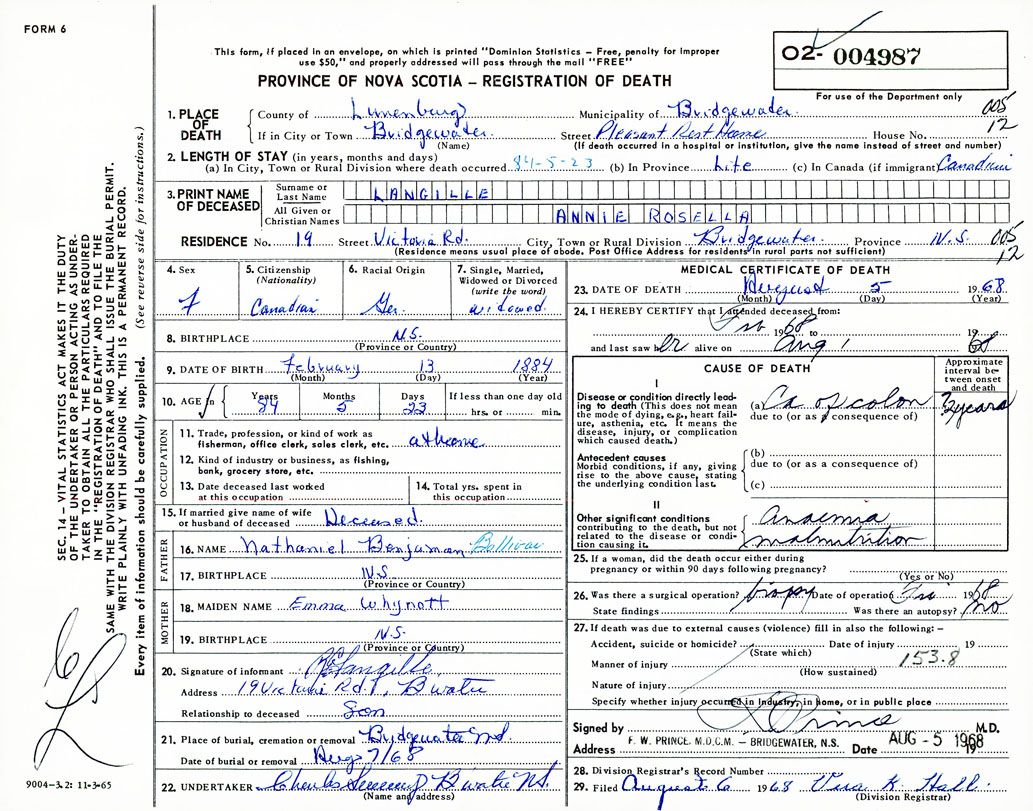 FORM 6
This form, if placed in an envelope, on which is printed "Dominion Statistics – Free, penalty for improper
use $50," and properly addressed will pass through the mail "FREE"
PROVINCE OF NOVA SCOTIA – REGISTRATION OF DEATH
02- 004987
For use of the Department only
005
12
1. PLACE OF DEATH
County of Lunenburg Municipality of Bridgewater
If in City or Town Bridgewater Street Pleasant Rest Home House No.
(Name) (If death occurred in a hospital or institution, give the name instead of street and number)
2. LENGTH OF STAY (in years, months and days)
(a) In City, Town or Rural Division where death occurred 84-5-23 (b) In Province Life (c) In Canada (if immigrant) Canadian
3. PRINT NAME OF DECEASED
Surname or Last Name LANGILLE
All Given or Christian Names ANNIE ROSELLA
RESIDENCE No. 19 Street Victoria Rd. City, Town or Rural Division Bridgewater Province N.S. 005
12
(Residence means usual place of abode. Post Office Address for residents in rural parts not sufficient)
4. Sex F
5. Citizenship (Nationality) Canadian
6. Racial Origin Ger.
7. Single, Married, Widowed or Divorced (write the word) widowed
8. BIRTHPLACE N.S.
(Province or Country)
9. DATE OF BIRTH February 13 1884
(Month) (Day) (Year)
10. AGE Years 84 Months 5 Days 23 If less than one day old
hrs. or min.
OCCUPATION
11. Trade, profession, or kind of work as
fisherman, office clerk, sales clerk, etc. at home
12. Kind of industry or business, as fishing,
bank, grocery store, etc.
13. Date deceased last worked
at this occupation
14. Total yrs. spent in
this occupation
15. If married give name of wife
or husband of deceased Deceased.
FATHER
16. NAME Nathaniel Benjaman Bollivar
17. BIRTHPLACE N.S.
(Province or Country)
MOTHER
18. MAIDEN NAME Emma Whynott
19. BIRTHPLACE N.S.
(Province or Country)
20. Signature of informant Langille
Address 19 Victoria Rd., B'water
Relationship to deceased Son
21. Place of burial, cremation or removal Bridgewater N.S.
Date of burial or removal Aug 7/68
22. UNDERTAKER Charles B'water N.S.
(Name and address)
MEDICAL CERTIFICATE OF DEATH
23. DATE OF DEATH August 5 1968
(Month) (Day) (Year)
24. I HEREBY CERTIFY that I attended deceased from:
1968 to 19
and last saw her alive on Aug 1 1968
CAUSE OF DEATH
Approximate interval between onset and death
I
Disease or condition directly leading
to death (This does not mean
the mode of dying, e.g., heart failure,
asthenia, etc. It means the
disease, injury, or complication
which caused death.)
(a) Ca of colon
due to (or as a consequence of)
years
Antecedent causes
Morbid conditions, if any, giving
rise to the above cause, stating
the underlying condition last.
(b)
due to (or as a consequence of)
(c)
II
Other significant conditions
contributing to the death, but not
related to the disease or condition
causing it.
Anaemia
malnutrition
25. If a woman, did the death occur either during
pregnancy or within 90 days following pregnancy?
(Yes or No)
26. Was there a surgical operation? biopsy Date of operation 1968
State findings Was there an autopsy? no
27. If death was due to external causes (violence) fill in also the following: –
Accident, suicide or homicide? Date of injury 19
(State which)
Manner of injury 153.8
(How sustained)
Nature of injury
Specify whether injury occurred in Industry, in home, or in public place
Signed by Prince M.D.
Address F. W. PRINCE, M.D.C.M. – BRIDGEWATER, N.S. Date AUG -5 1968
19
28. Division Registrar's Record Number
29. Filed August 6 1968 K. Hall.
(Division Registrar)
SEC. 14 – VITAL STATISTICS ACT MAKES IT THE DUTY
OF THE UNDERTAKER OR PERSON ACTING AS UNDERTAKER
TO OBTAIN ALL THE PARTICULARS REQUIRED
IN THE "REGISTRATION OF DEATH" AND TO FILE THE
SAME WITH THE DIVISION REGISTRAR WHO SHALL ISSUE THE BURIAL PERMIT.
WRITE PLAINLY WITH UNFADING INK. THIS IS A PERMANENT RECORD.
Every item of information should be carefully supplied. (See reverse side for instructions.)
9004-3.2: 11-3-65